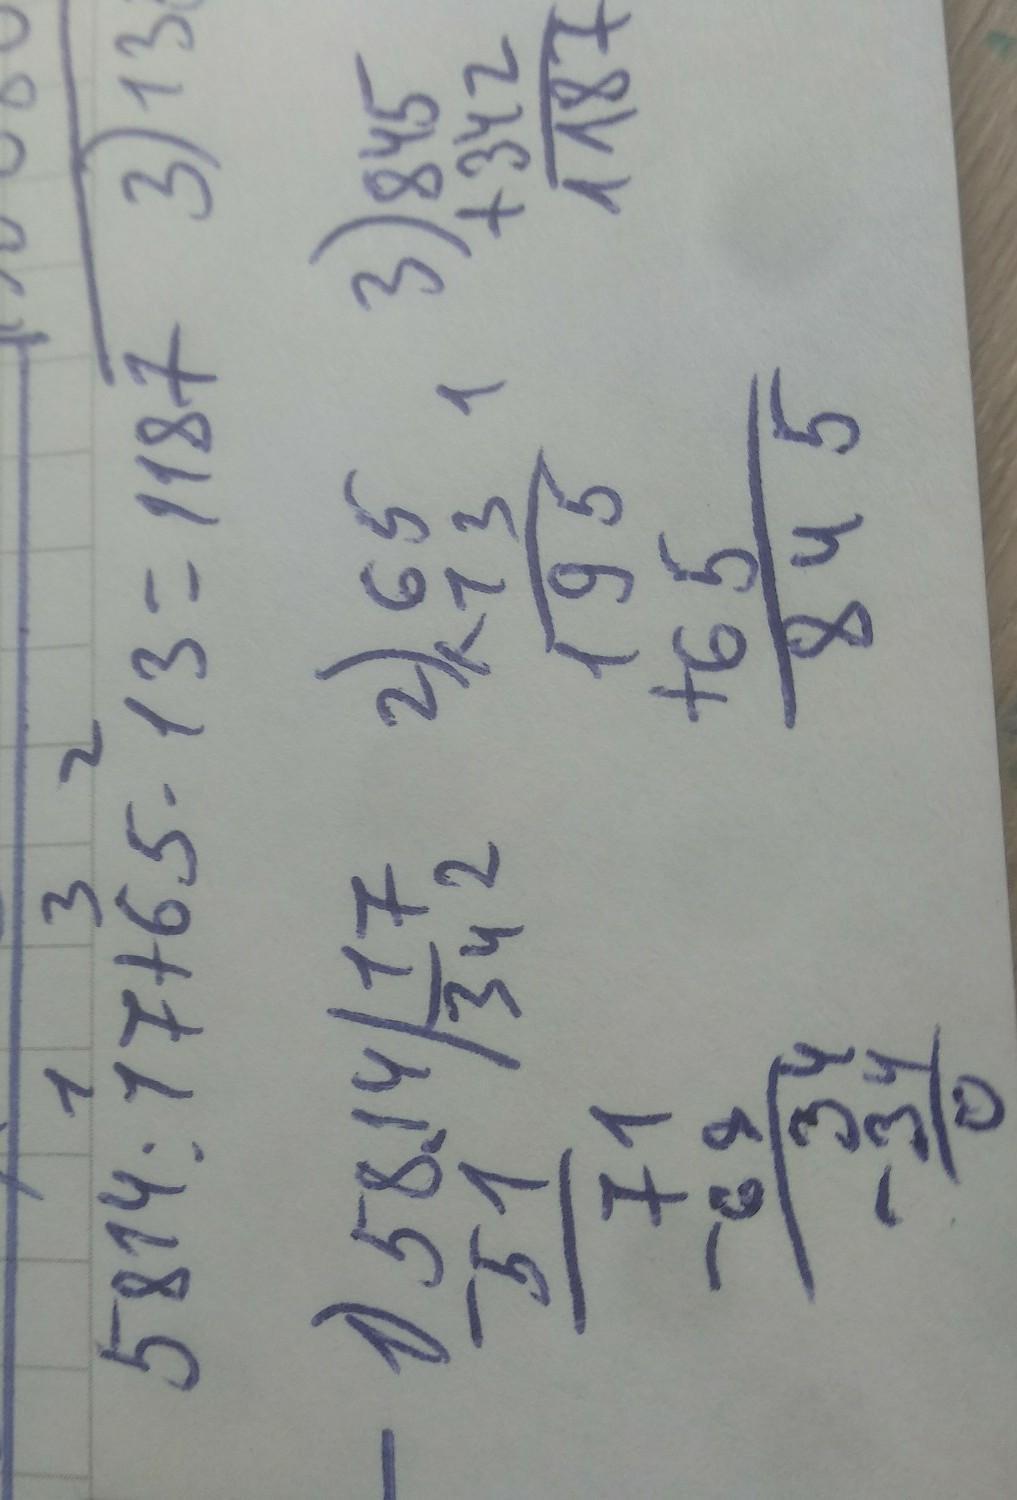 1 3 2
5814:17+65·13=1187
1) 5814 17
-51 342
71
-68
34
-34
0
2) 65
×13
195
+65
845
1
3) 845
+342
1187
3) 13